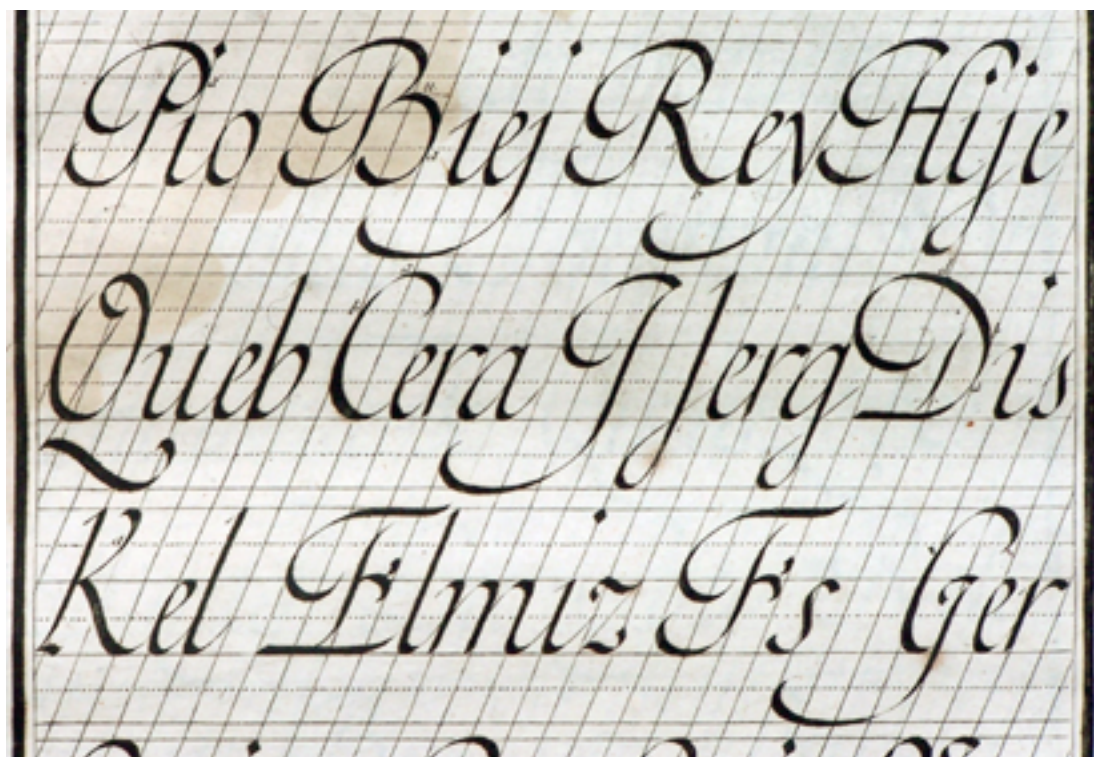 Pio Biej Rey Hije
Queb Cera Jferg Dis
Kel Elmiz Fs Ger